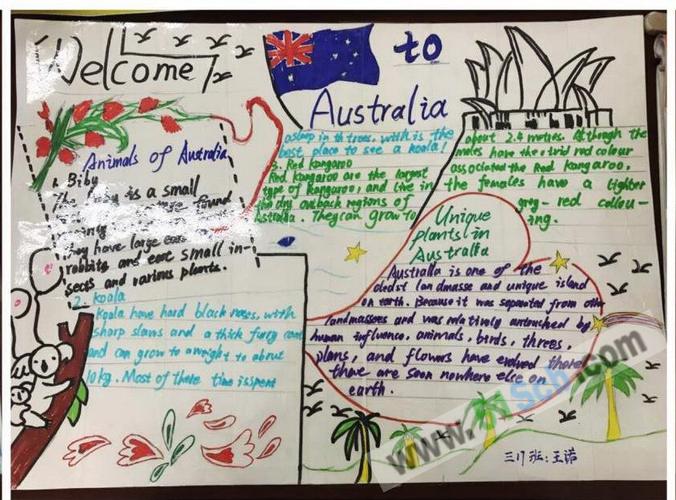 Welcome
to
Australia
Animals of Australia
1. Biby
The biby is a small
found
They have large ears
rabbits and eat small in-
sects and varinus plants.
2. koala
koala have hard black noses, with
sharp slaws and a thick furry coat
and can grow to a weight to about
10kg. Most of there time is spent
asleep in th trees, with is the
best place to see a koala!
3. Red kangaroo
Red kangaroo are the largest
type of kangaroo, and live in
the dry outback regions of
Australia. They can grow to
about 2.4 metres. Although the
males have the vivid red colour
associated the Red kangaroo,
the females have a lighter
grey-red collou-
ing.
Unique
plants in
Australia
Australia is one of the
oledst landmasse and unique island
on earth. Because it was separated from othe
landmasses and was relatively untouched by
human influence, animals, birds, threes,
plans, and flowers have evolved there
that are seen nowhere else on
earth.
三17班:王诺